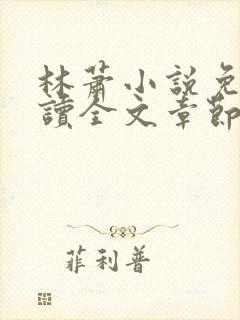 林蕭小說免
讀全文章節
菲利普